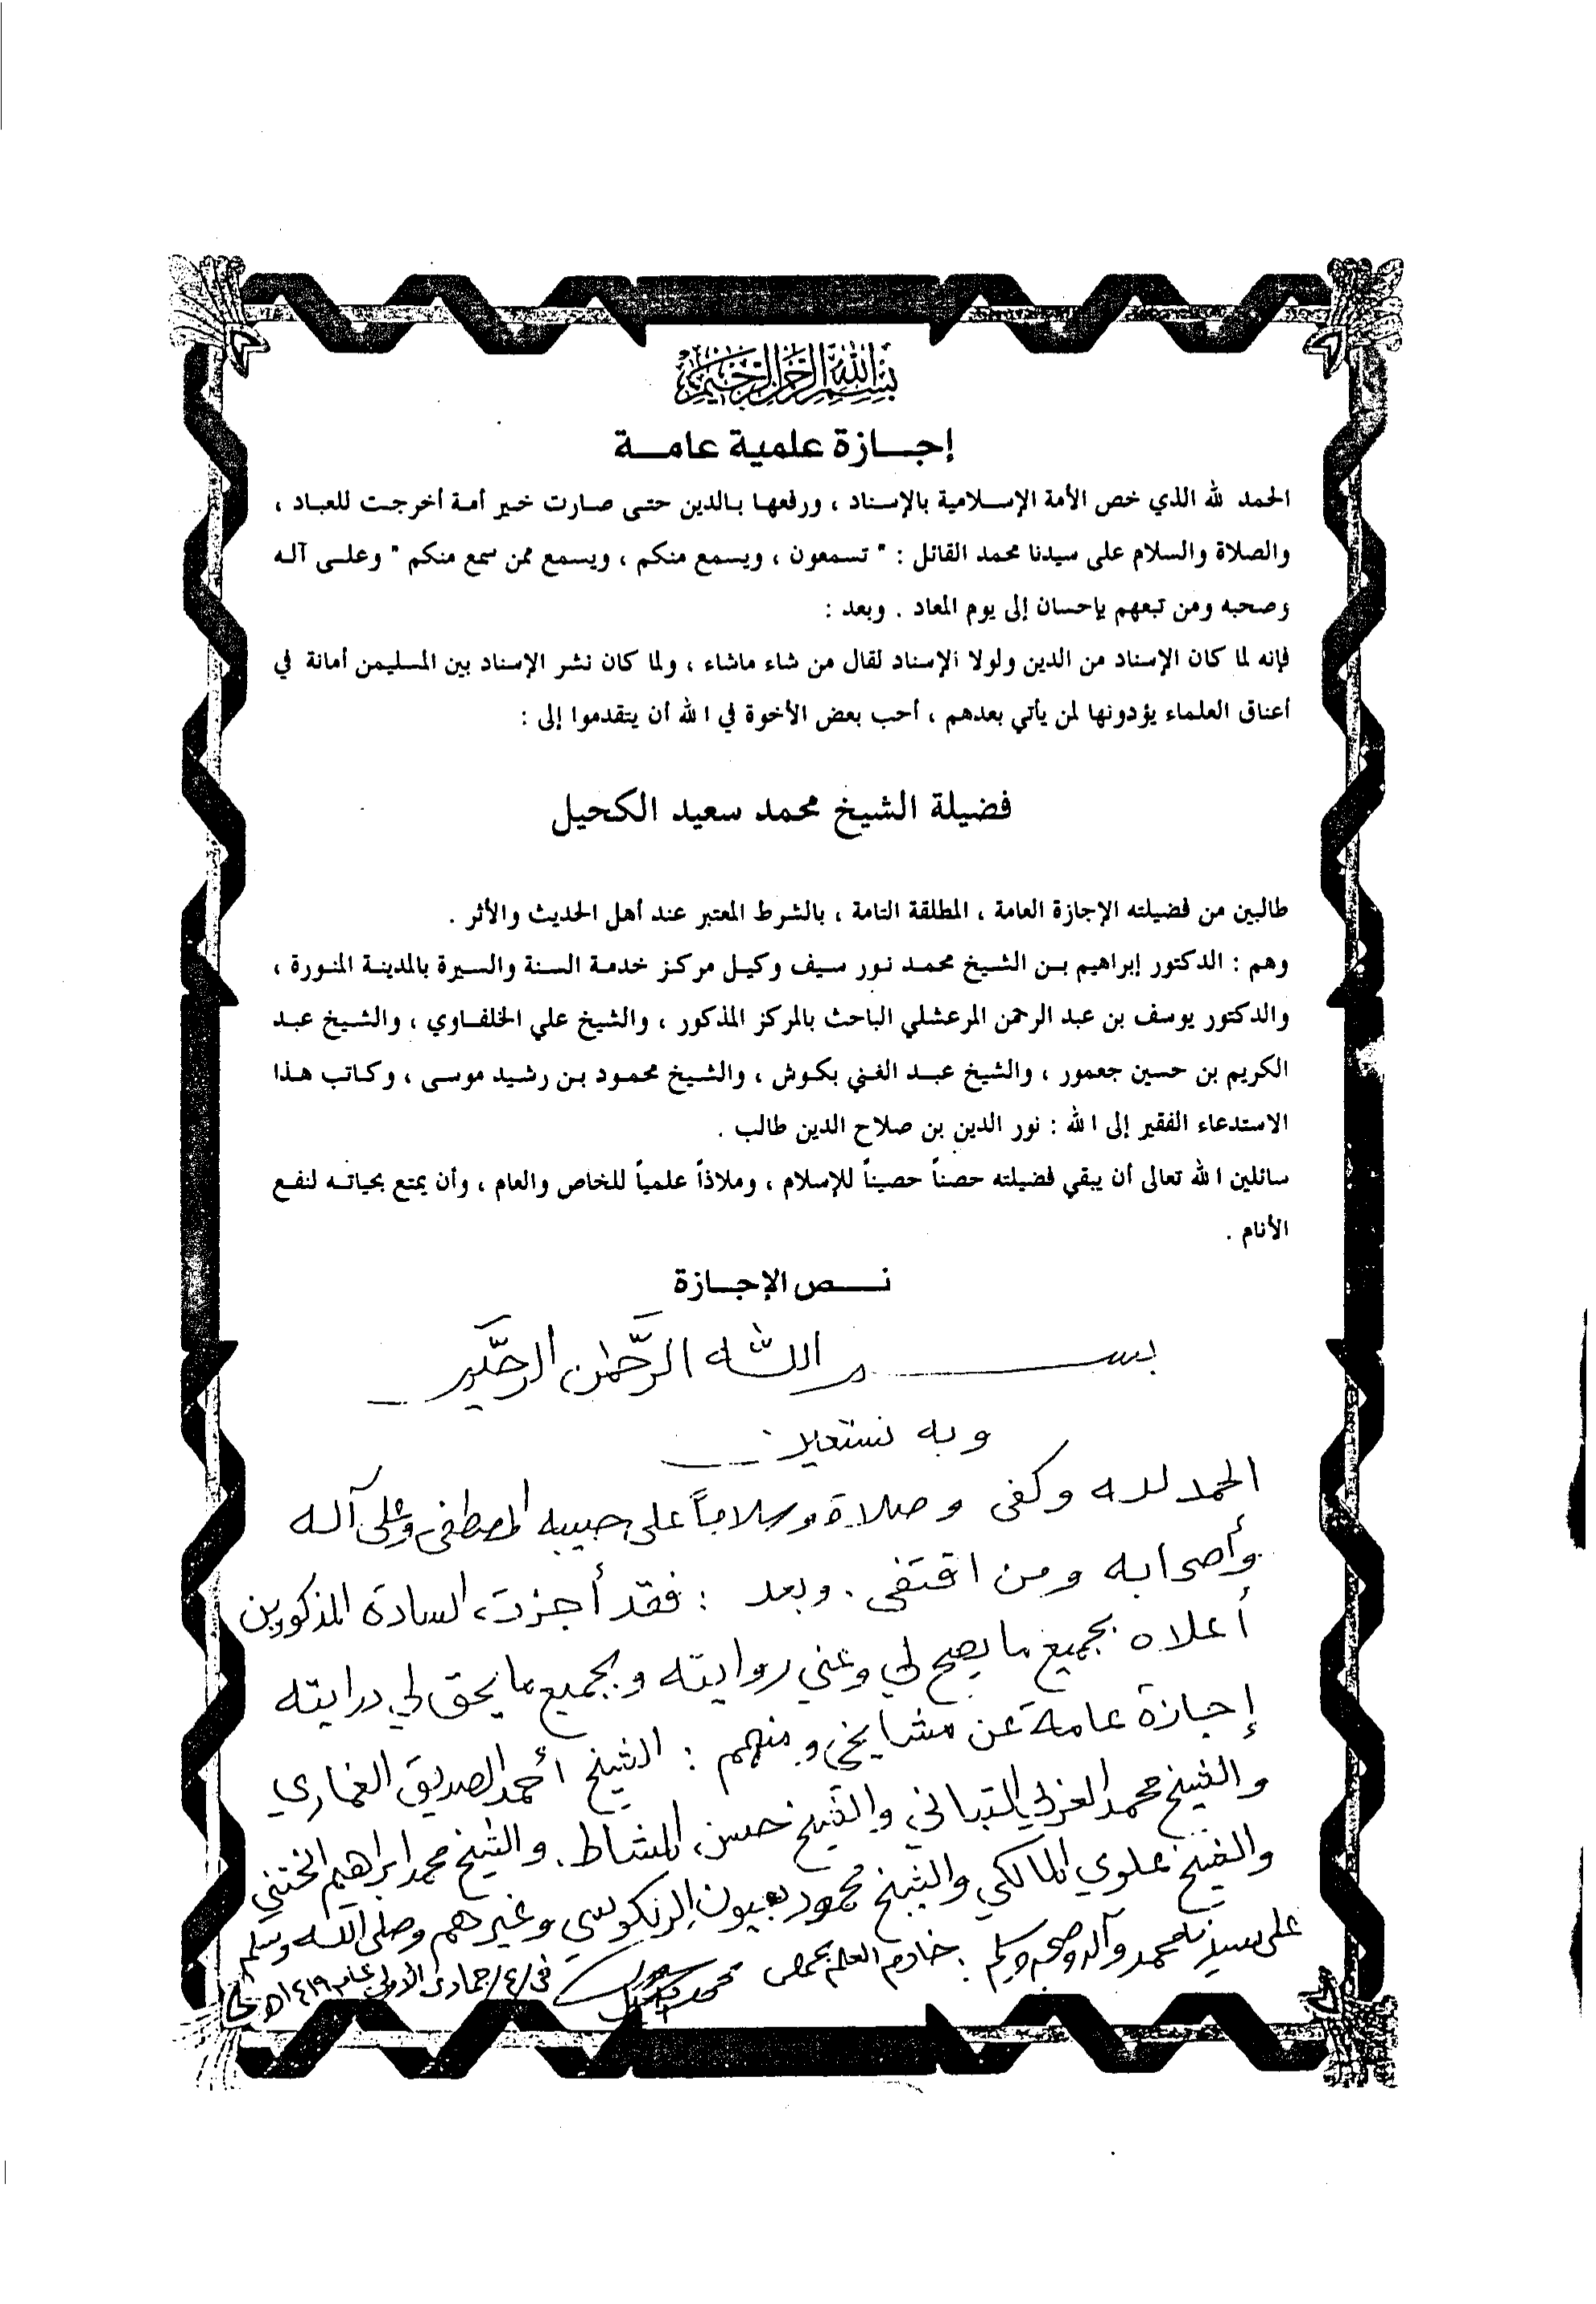 بسم الله الرحمن الرحيم
إجـــازة علمية عامـــة
الحمد لله الذي خص الأمة الإسـلامية بالإسناد ، ورفعها بـالدين حتـى صـارت خـير أمـة أخرجـت للعبـاد ،
والصلاة والسلام على سيدنا محمد القائل : " تسمعون ، ويسمع منكم ، ويسمع ممن سمع منكم " وعلـى آلـه
وصحبه ومن تبعهم بإحسان إلى يوم المعاد . وبعد :
فإنه لما كان الإسناد من الدين ولولا الإسناد لقال من شاء ماشاء ، ولما كان نشر الإسناد بين المسليمن أمانة في
أعناق العلماء يؤدونها لمن يأتي بعدهم ، أحب بعض الأخوة في الله أن يتقدموا إلى :
فضيلة الشيخ محمد سعيد الكحيل
طالبين من فضيلته الإجازة العامة ، المطلقة التامة ، بالشرط المعتبر عند أهل الحديث والأثر .
وهم : الدكتور إبراهيم بـن الشـيخ محمـد نـور سيف وكيـل مركـز خدمـة السـنة والسـيرة بالمدينـة المنـورة ،
والدكتور يوسف بن عبد الرحمن المرعشلي الباحث بالمركز المذكور ، والشيخ علي الخلفـاوي ، والشـيخ عبـد
الكريم بن حسين جعمور ، والشيخ عبـد الغـني بكوش ، والشـيخ محمـود بـن رشـيد موسـى ، وكـاتب هـذا
الاستدعاء الفقير إلى الله : نور الدين بن صلاح الدين طالب .
سائلين الله تعالى أن يبقي فضيلته حصناً حصيناً للإسلام ، وملاذاً علمياً للخاص والعام ، وأن يمتع بحياتـه لنفـع
الأنام .
نـــص الإجـازة
بســـم الله الرَّحمٰن الرحَّيم
وبه نستعين
الحمد لله وكفى وصلاة وسلاماً على حبيبه المصطفى وعلى آله
وأصحابه ومن اقتفى . وبعد : فقد أجزت السادة المذكورين
أعلاه بجميع ما يصح لي وعني روايته وبجميع ما يحق لي درايته
إجازة عامة عن مشايخي ومنهم : الشيخ أحمد الصديق الغماري
والشيخ محمد العربي التباني والشيخ حسن المشاط . والشيخ محمد ابراهيم الختني
والشيخ علوي المالكي والشيخ محمود بعيون الرنكوسي وغيرهم وصلى الله وسلم
على سيدنا محمد وآله وصحبه وسلم . خادم العلم بحمص محمد سعيد الكحيل في /٤/جمادى الأولى عام ١٤١٩هـ